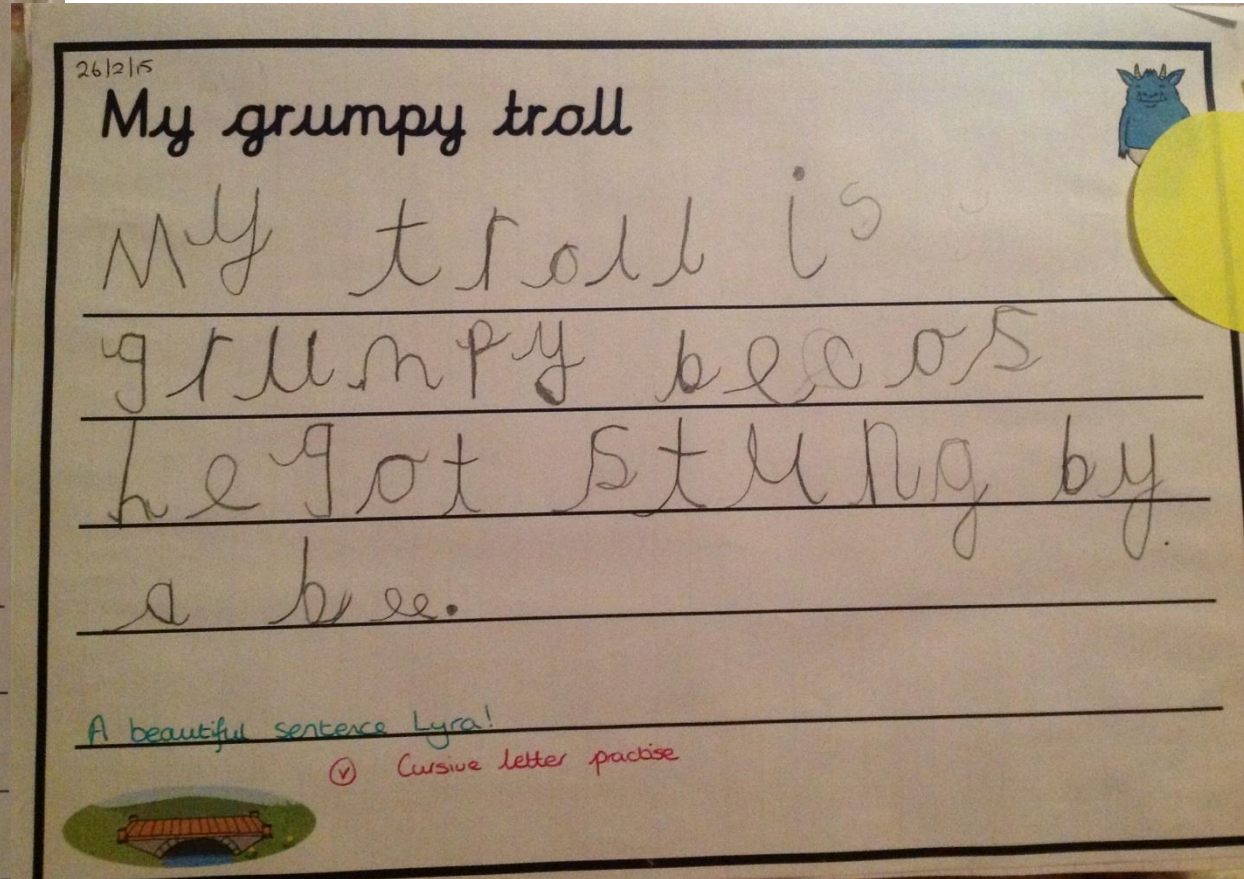 26/2/15
My grumpy troll
My troll is
grumpy becos
he got stung by.
a bee.
A beautiful sentence Lyra!
Ⓥ Cursive letter practise